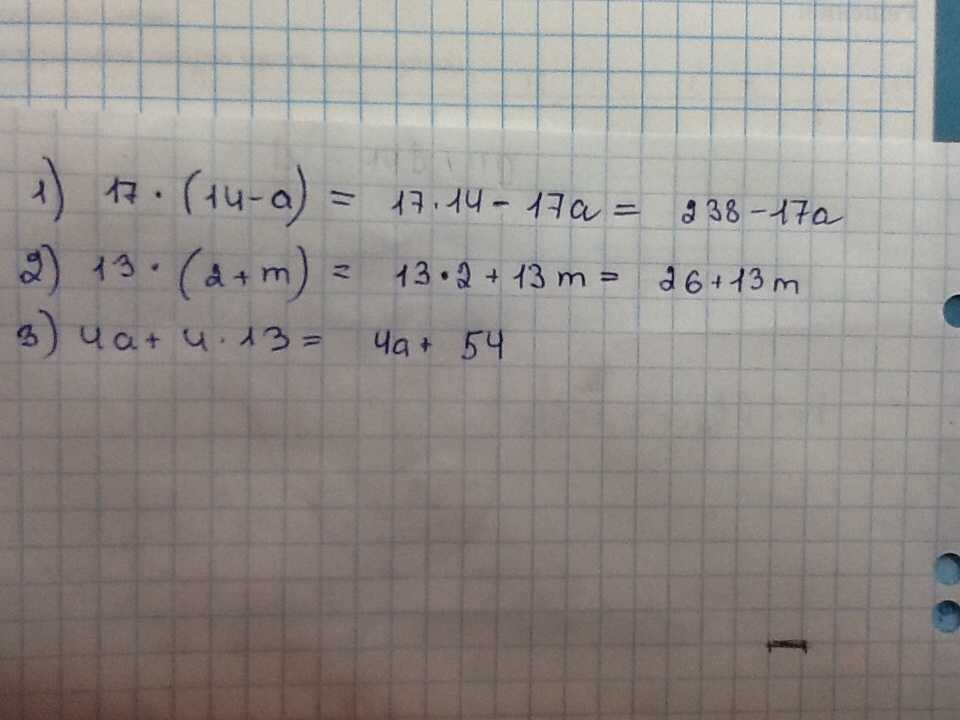 1) 17 · (14-a) = 17·14 - 17a = 238-17a
2) 13 · (2+m) = 13·2 + 13m = 26+13m
3) 4a + 4·13 = 4a + 54